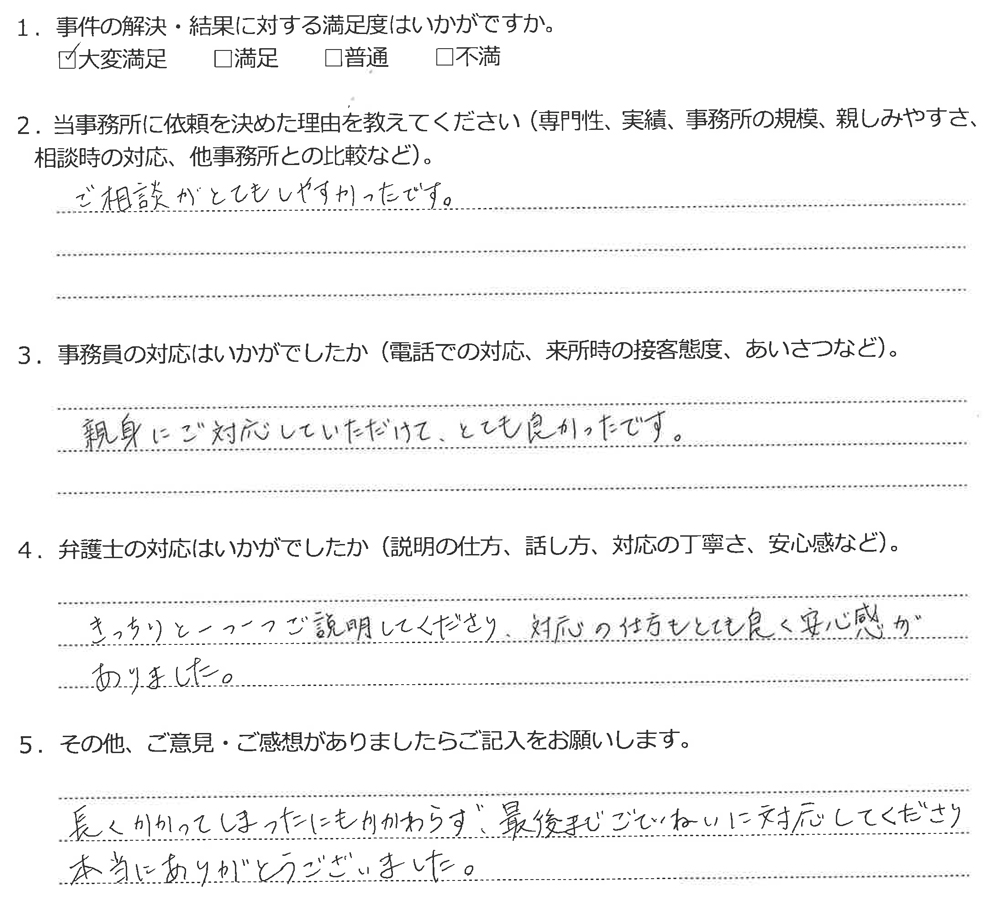 1．事件の解決・結果に対する満足度はいかがですか。
☑大変満足　□満足　□普通　□不満
2．当事務所に依頼を決めた理由を教えてください（専門性、実績、事務所の規模、親しみやすさ、
相談時の対応、他事務所との比較など）。
ご相談がとてもしやすかったです。
3．事務員の対応はいかがでしたか（電話での対応、来所時の接客態度、あいさつなど）。
親身にご対応していただけて、とても良かったです。
4．弁護士の対応はいかがでしたか（説明の仕方、話し方、対応の丁寧さ、安心感など）。
きっちりと一つ一つご説明してくださり、対応の仕方もとても良く安心感が
ありました。
5．その他、ご意見・ご感想がありましたらご記入をお願いします。
長くかかってしまったにもかかわらず、最後までごていねいに対応してくださり
本当にありがとうございました。